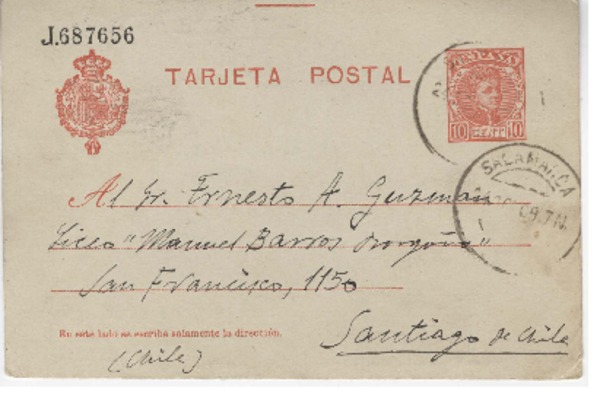 J.687656
TARJETA POSTAL
10 CENT 10
SALAMANCA
Al Sr. Ernesto A. Guzmán
Liceo "Manuel Barros Borgoño"
San Francisco, 1150
En este lado se escribe solamente la dirección.
Santiago de Chile
(Chile)